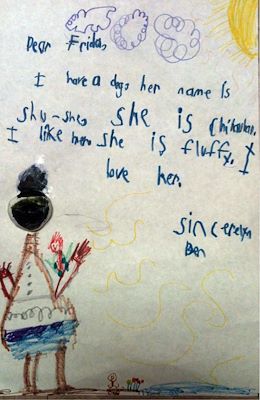 Dear Frida,
I have a dog, her name Is
shu-shu she is Chihuahua.
I like her. she is fluffy, I
love her.
Sincerelyn
Ben